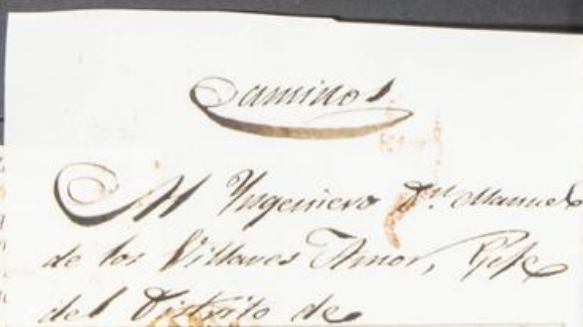 Caminos
Al Ingeniero Dn. Manuel
de los Villares Amor, Gefe
del Distrito de